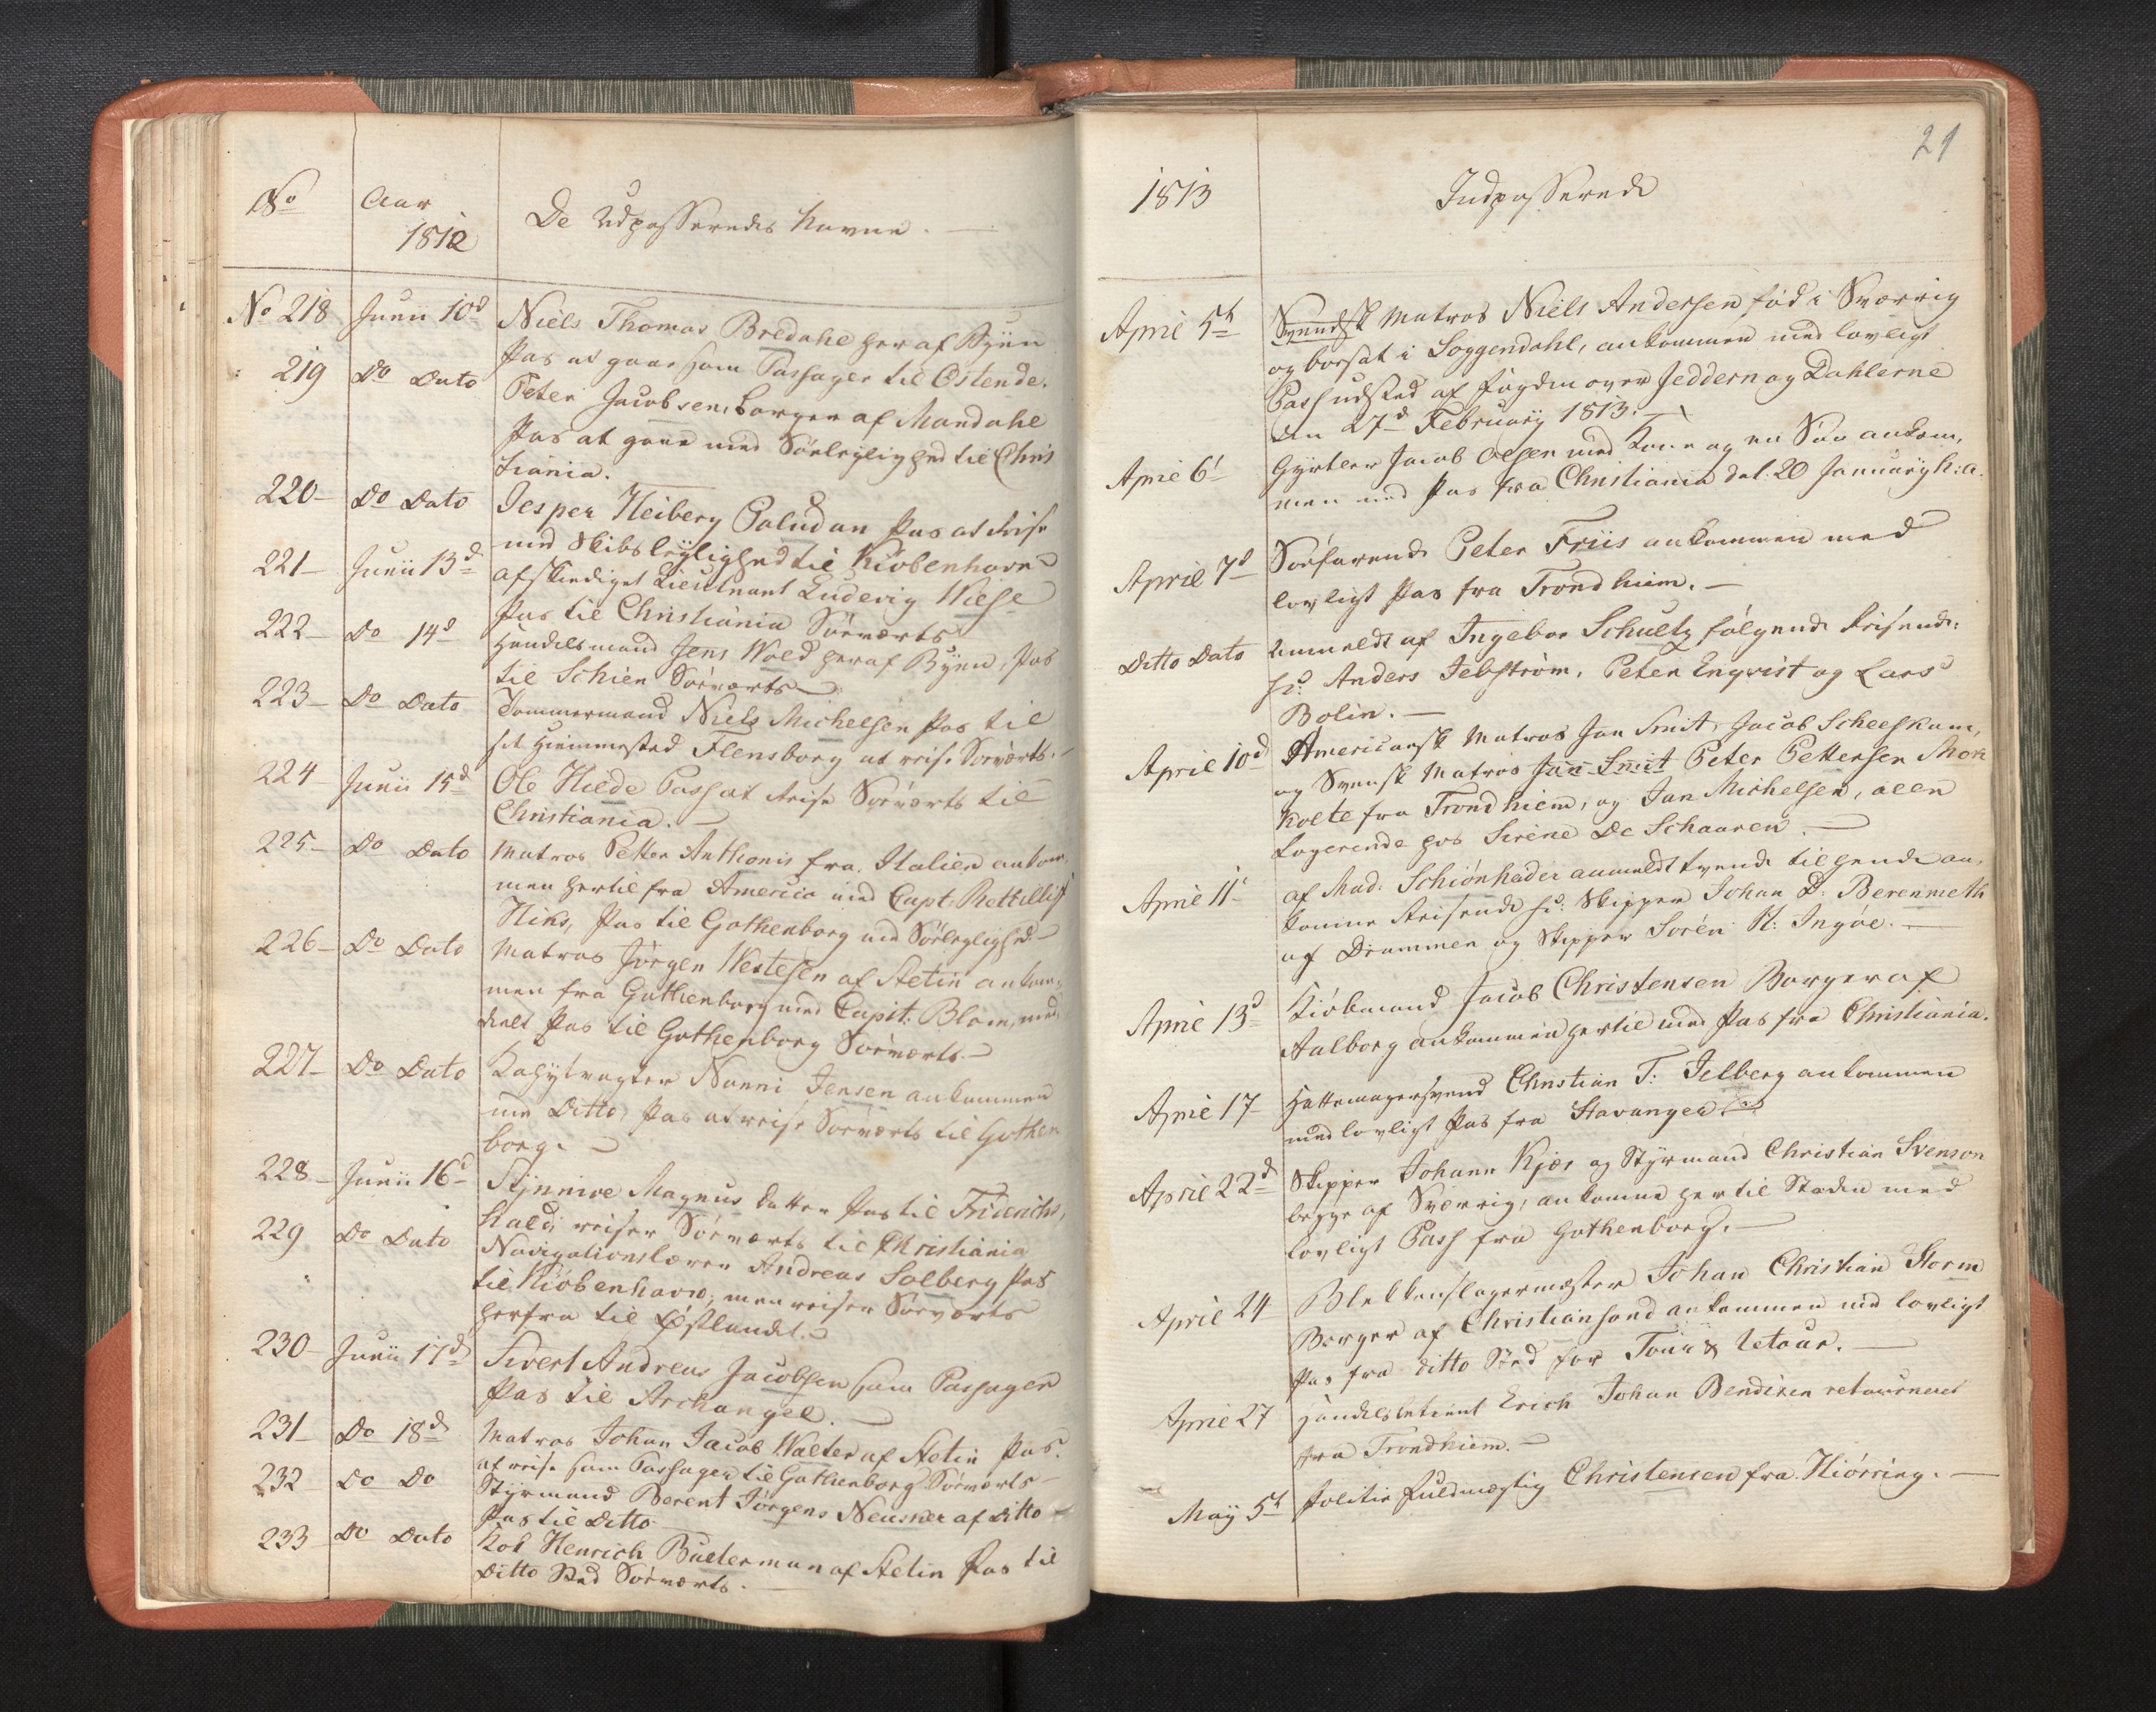 No
Aar
1812
De Udpasseredes Navne. —
No 218 Junii 10d Niels Thomas Bredahl her af Byen
Pas at gaae som Passager til Ostende.
219 Do Dato Peter Jacobsen, borger af Mandahl
Pas at gaae med Söeleylighed til Chris
tiania.
220 Do Dato Jesper Heiberg Paludan Pas at Reise
med Skibsleylighed til Kiöbenhavn
221 Junii 13d afskediget Lieutnant Ludevig Wiese
Pas til Christiania Söeværts
222 Do 14d Handelsmand Jens Wold her af Byen, Pas
til Schien Söeværts
223 Do Dato Tømmermand Niels Michelsen Pas til
sit Hiemmested Flensborg at reise Söeværts. —
224 Junii 15d Ole Hilde Pass at Reise Söeværts til
Christiania. —
225 Do Dato Matros Petter Anthonis fra Italien ankom,
men hertil fra America med Capt:
Hiks, Pas til Gothenborg med Söeleylighed —
226 Do Dato Matros Jörgen Westesen af Stetin ankom,
men fra Gothenborg med Capit: Blom, med,
deelt Pas til Gothenborg Söeværts. —
227 Do Dato Kahytvagter Nanni Jensen ankommen
med Ditto, Pas at reise Söeværts til Gothen
borg. —
228 Junii 16d Synnive Magnus datter Pas til Friderichs,
hald, reiser Söeværts til Christiania
229 Do Dato Navigationslærer Andreas Solberg Pas
til Kiöbenhavn, men reiser Söeværts
herfra til Østlandet.
230 Junii 17d Sivert Andreas Jacobsen som Passager
Pas til Archangel. —
231 Do 18d Matros Johan Jacob Walter af Stetin Pas
at reise som Passager til Gothenborg Söeværts —
232 Do Do Styrmand Berent Jörgens Neusner af Ditto
Pas til Ditto
233 Do Dato Kok Henrich Buelerman af Stetin Pas til
Ditto Sted Söeværts. —
21
1813
Indpasserede
April 5t Svendsk Matros Niels Andersen föd i Sverrig
og boesat i Soggendahl, ankommen med lovligt
Pass udsted af fogden over Jeddern og Dahlerne
den 27d February 1813. —
April 6t Gyrtler Jacob Olsen med Kone og en Sön ankom,
men med Pas fra Christiania dat: 20 January h: a.
April 7d Söefarende Peter Friis ankommen med
lovligt Pas fra Trondhiem. —
Ditto Dato Anmeldt af Ingebor Schultz fölgende Reisende:
sc: Anders Jebström, Peter Enqvist og Lars
Bolin. —
April 10d Americansk Matros Jan Smit, Jacob Scheefkam,
og Svensk Matros Jan Smit Peter Pettersen
holte fra Trondhiem, og Jan Michelsen, alle
logerende hos Sirene De Schaaren. —
April 11t af Mad: Schiönheder anmeldt tvende til hende an,
komne Reisende sc: Skipper Johan D: Berenmeth
af Drammen og Skipper Sören H: Ingöe. —
April 13d Kiöbmand Jacob Christensen Borger af
Aalborg ankommen hertil med Pas fra Christiania.
April 17 Hattemagersvend Christian T: Jelberg ankommen
med lovligt Pas fra Stavanger
April 22d Skipper Johann Kjær og Styrmand Christian Svenson
begge af Sverrig, ankomne hertil Staden med
lovligt Pass fra Gothenborg. —
April 24 Blekkenslagermester Johan Christian Storm
Borger af Christiansand ankommen med lovligt
Pas fra ditto Sted for Tour & Retour. —
April 27 Handelsbetient Erich Johan Bendixen retourneret
fra Trondhiem. —
May 5t Politie fuldmægtig Christensen fra Hiörring. —